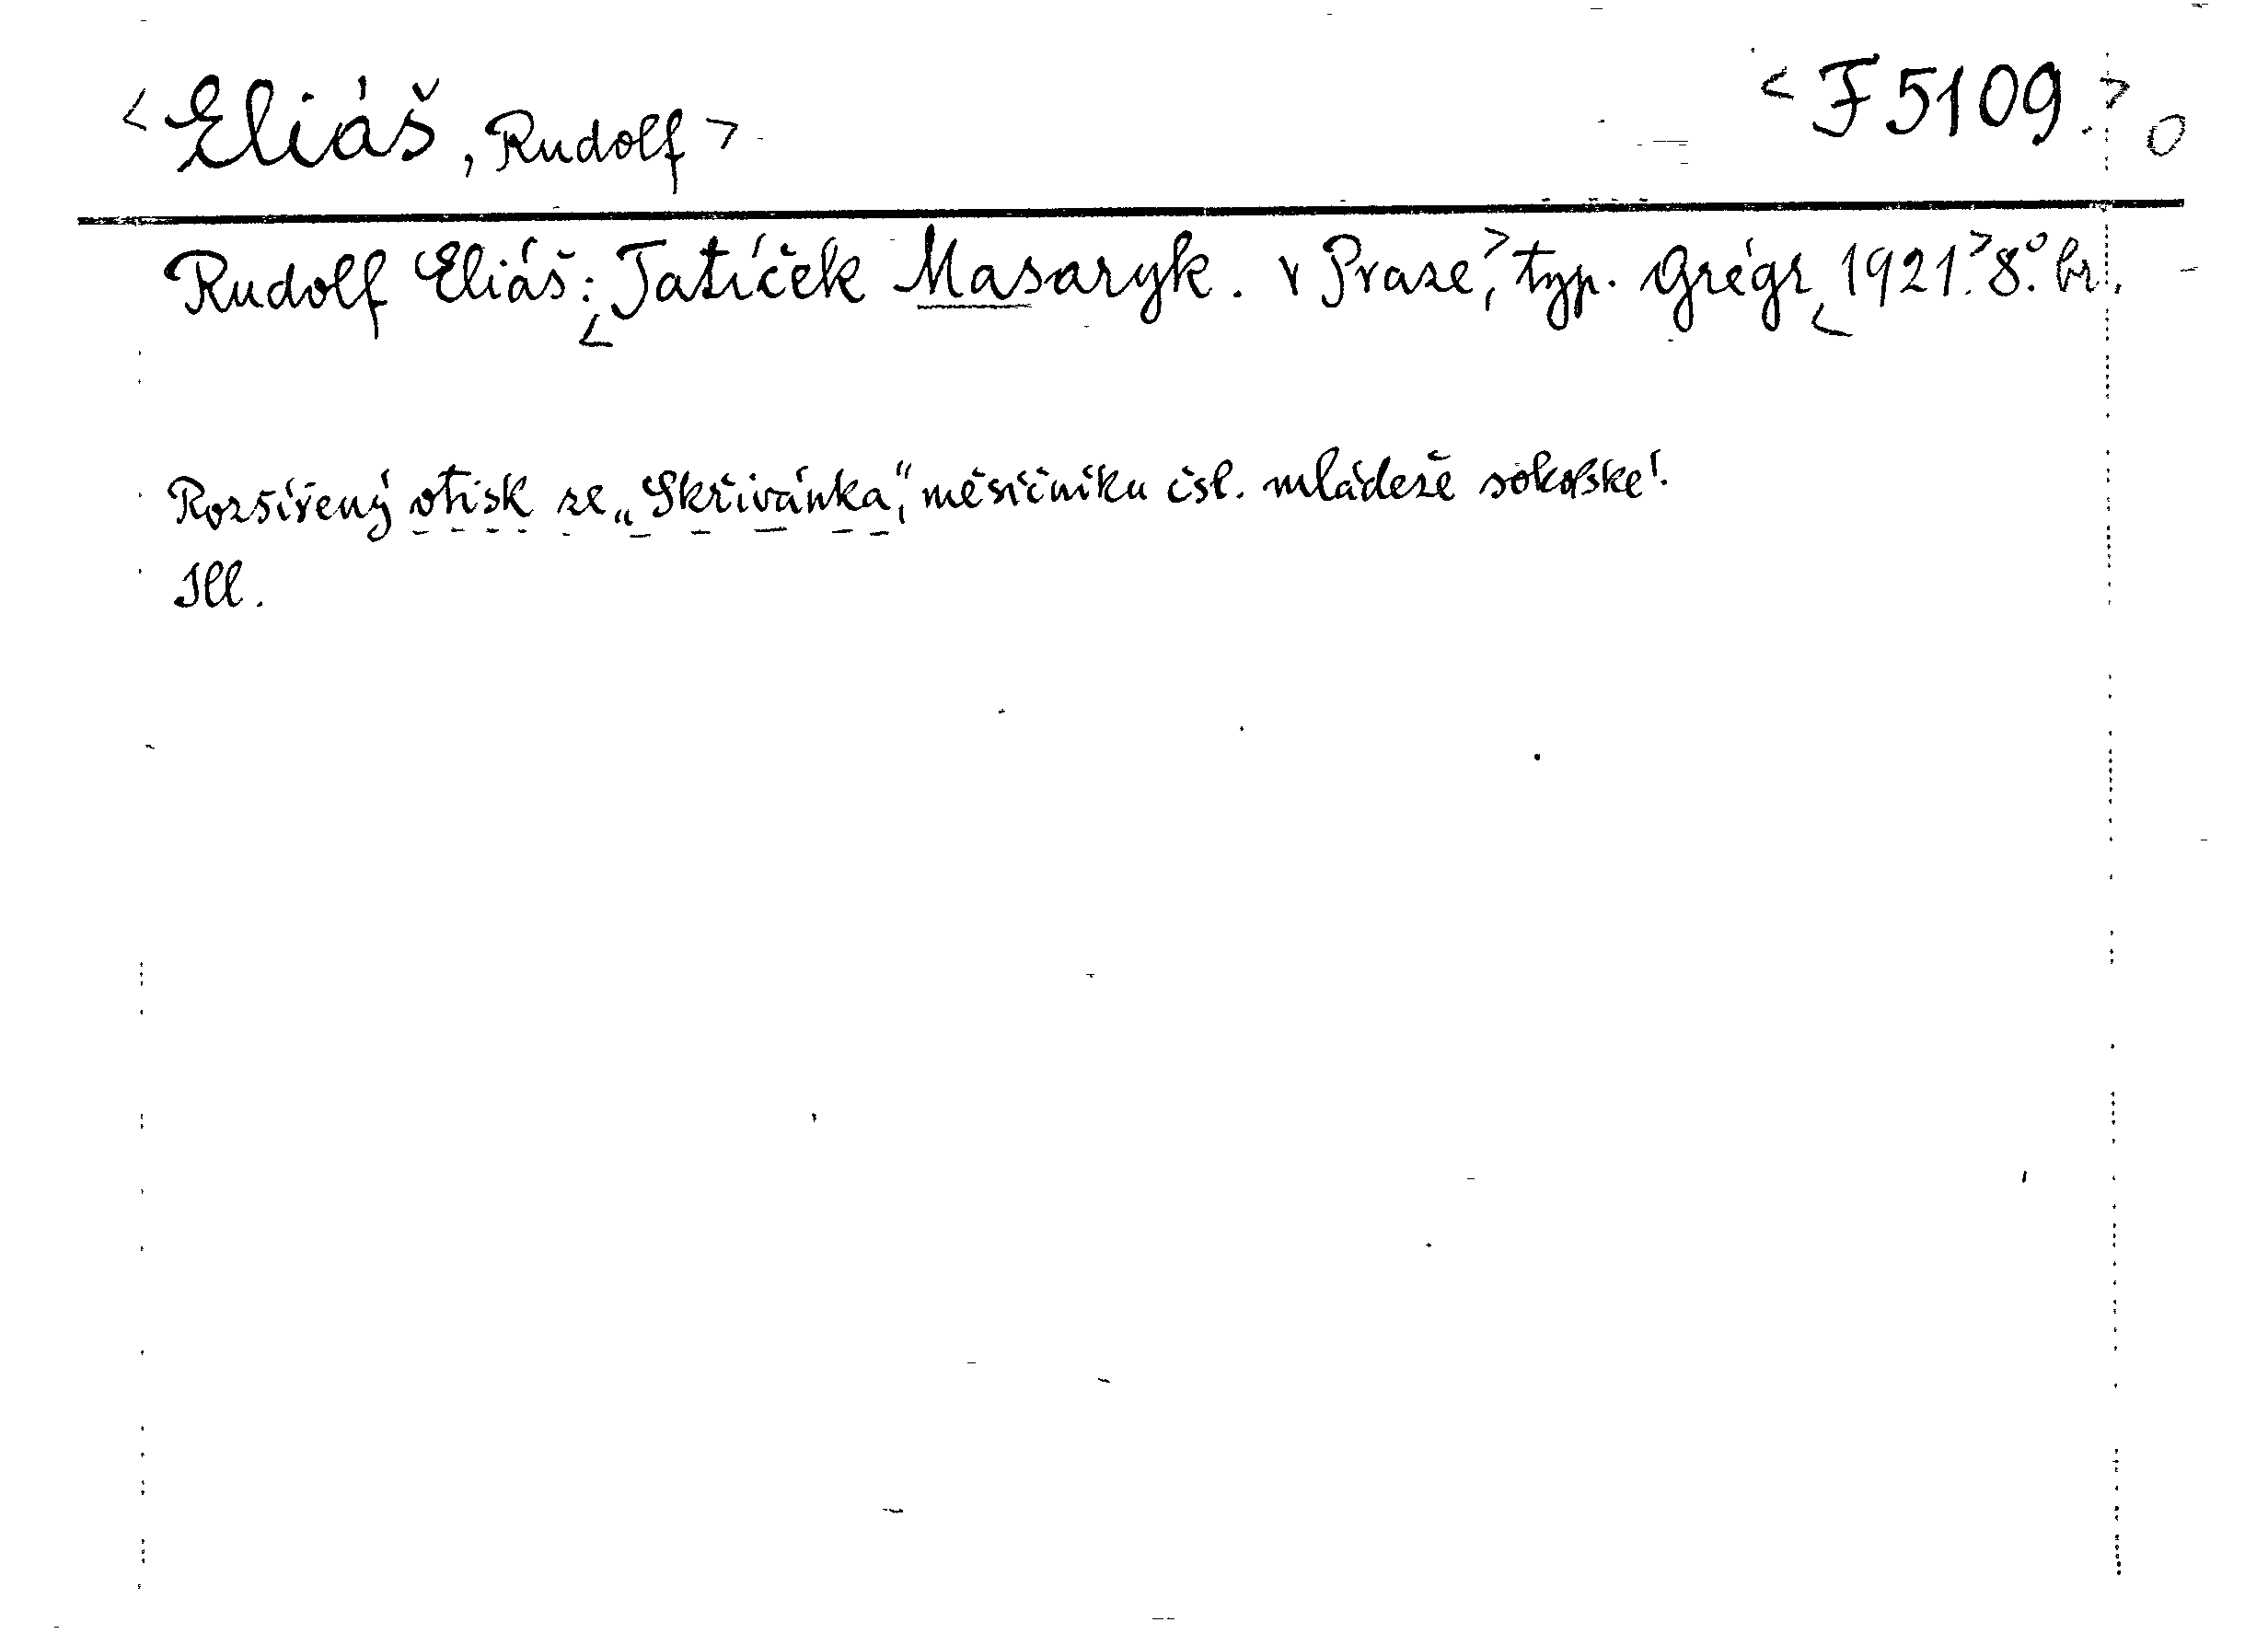 <Eliáš, Rudolf> <F 5109.> 0
Rudolf Eliáš: <Tatíček Masaryk. V Praze,> typ. Grégr <1921.> 8.° br.
Rozšířený otisk ze „Skřivánka“, měsíčníku čsl. mládeže sokolské.
Ill.